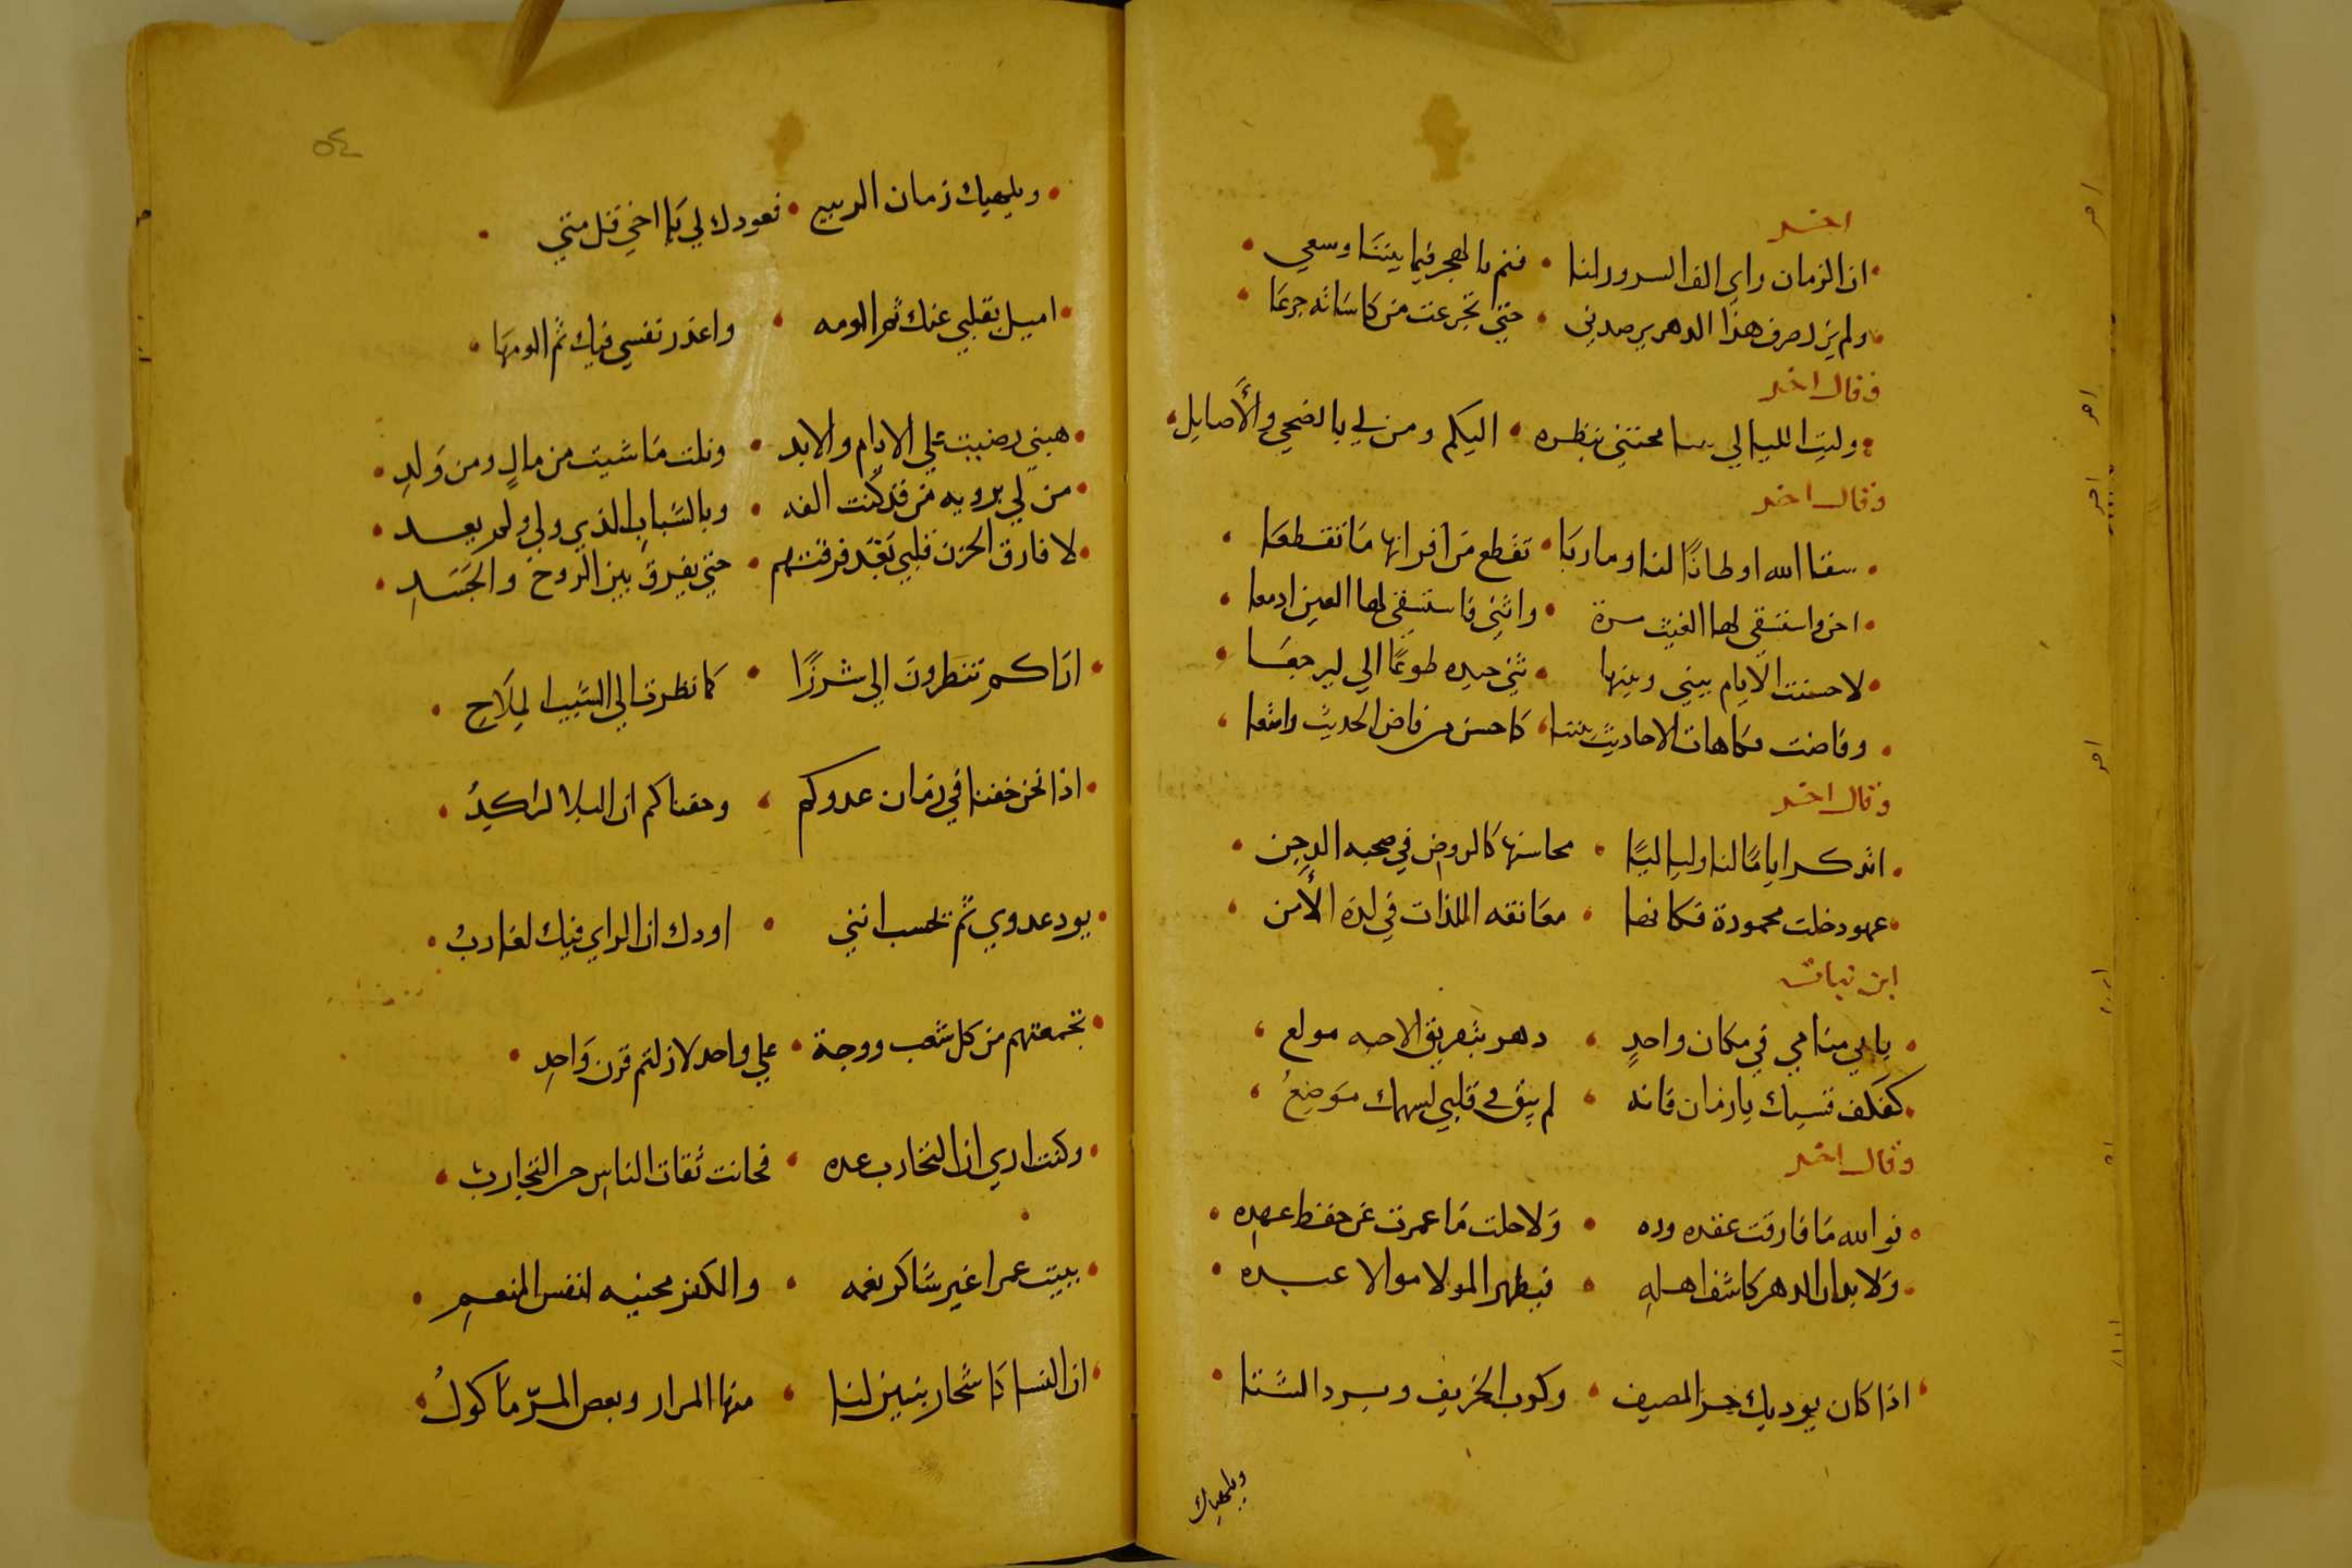 اخر
ان الزمان راي الف السرور لنا • فنم بالهجر فيما بيننا وسعي
ولم يزل صرف هذا الدهر يرصدني • حتي تجرعت من كاساته جرعا
وقال اخر
وليت الليالي سامحتني بنظره • اليكم ومن لي بالضحي والأصايل
وقال اخر
سقا الله اوطانًا لنا وماربا • تقطع من اقرانها ما تقطعا
احن واستسقي لها الغيث مرة • واثني فاستسقي لها العين ادمعا
لا حسنت الايام بيني وبينها • ثني جيده طوعًا الي ليرجعا
وفاضت فكاهات الاحاديث بيننا • كاحسن من فاض الحديث وامتعا
وقال اخر
اتذكر ايامًا لنا ولياليًا • محاسنها كالروض في صحبه الدجن
عهود خلت محمودة فكانها • معانقه اللذات في لذه الأمن
ابن نباته
يابي منامي في مكان واحدٍ • دهر بتفريق الاحبه مولع
كفكف قسيك يا زمان فانه • لم يبق في قلبي لسهمك موضعُ
وقال اخر
فوالله ما فارقت عقده وده • ولا حلت ما عمرت عن حفظ عهده
ولا بد ان الدهر كاشف اهله • فيظهر المولا موالا عبده
اذا كان يوديك حر المصيف • وكرب الخريف وبرد الشتا
ويلهيك
٥٤
ويلهيك زمان الربيع • فعودك لي يا اخي قل متي
اميل بقلبي عنك ثم الومه • واعذر نفسي فيك ثم الومها
هبني رضيت علي الايام والابد • ونلت ما شيت من مالٍ ومن ولدِ
من لي برويه من قد كنت الفه • وبالشباب الذي ولي ولم يعد
لا فارق الحزن قلبي بعد فرقتهم • حتي يفرق بين الروح والجسدِ
اراكم تنظرون الي شزرًا • كما نظرت الي الشيب الملاحِ
اذا نحن خفنا في زمان عدوكم • وخفناكم ان البلا لراكدُ
يود عدوي ثم تحسب انني • اودك ان الراي فيك لعازبُ
تجمعتهم من كل شعب ووجهة • علي واحد لا زلتم قرن واحدِ
وكنت اري ان التجارب عده • فخانت ثقات الناس حر التجاربِ
بييت عمرا غير شاكر نعمه • والكفر مخبثه لنفس المنعمِ
ان النسا كاشجار نبتن لنا • منها المرار وبعض المرّ ماكولُ